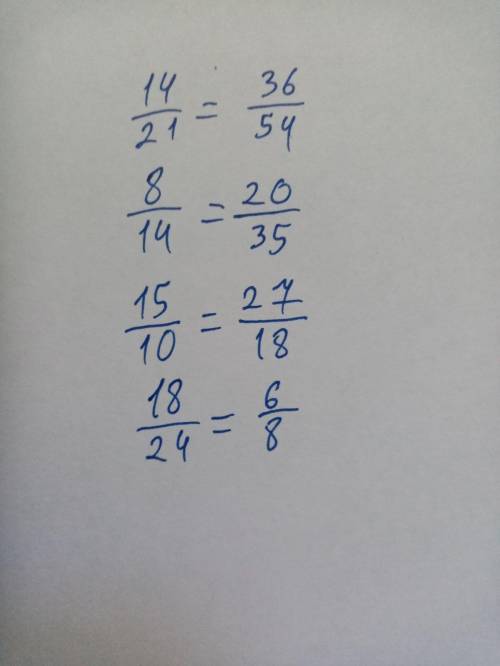 14/21 = 36/54
8/14 = 20/35
15/10 = 27/18
18/24 = 6/8